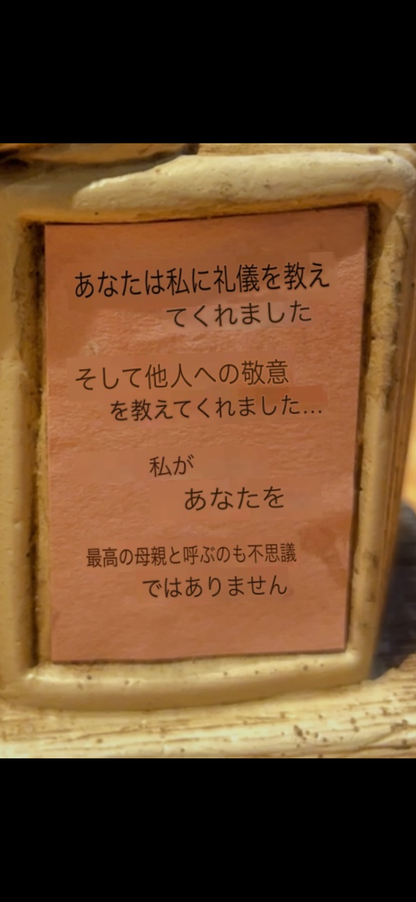 あなたは私に礼儀を教え
てくれました
そして他人への敬意
を教えてくれました...
私が
あなたを
最高の母親と呼ぶのも不思議
ではありません